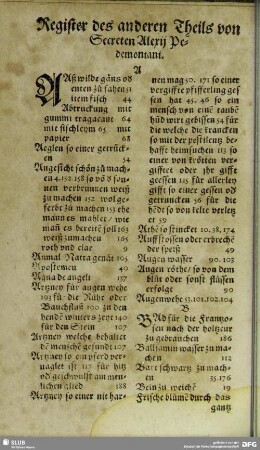 Register des anderen Theils von
Secreten Alexij Pe-
demontani.
A
AAß wilde gäns oď
enten zů fahen 31
item fisch 44
Abtruckung mit
gummi tragacant 64
mit fischleym 65 mit
papier 68
Aeglen so einer getrücken
54
Angesicht schön zů machen
4.152.158 so võ ď sonnen
verbrunnen weiß
zů machen 152 wolgeferbt
zů machen 153
mann es mahlet, wie
man es bereitẽ soll 103
weiß zů machen 165
roth und clar 9
Animal Natta genãt 105
Apostemen 40
Aqua de angeli 137
Artzney für augen wehe
193 für die Růhr oder
Bauchfluß 190 zů den
hendẽ winters zeyt 140
für den Stein 107
Artzney welche behaltet
dẽ menschẽ gesundt 107
Artzney so ein pferd vernaglet
ist 117 für hitz
oď geschwulst am menlichen
glied 188
Artzney so einer nit harnen
mag 50. 171 so einer
vergiffte pfifferling gessen
hat 45. 46 so ein
mensch võ einẽ taubẽ
hũd wirt gebissen 54 für
die welche die krancken
so mit der pestilentz behaffte
heimsuchen 113 so
einer von krötten vergifftet
oder sie gifft
geessen 115 für allerley
gifft so einer gessen oď
getruncken 36 für die
Athẽ so stincket 10.38,174
Auffstossen oder erbreche
der speiß 49
Augen wasser 90. 103
Augen röthe / so von dem
blůt oder sonst flüssen
erfolge 90
Augenwehe 53.101.102.104
B
BAd für die Frantzosen
nach der holtzcur
zů gebrauchen 186
Ballsamin wasser zů machen
112
Bart schwartz zů machen
35.176
Bein zů weichẽ 19
Frische blůme durch das
gantz
SLUB
DFG